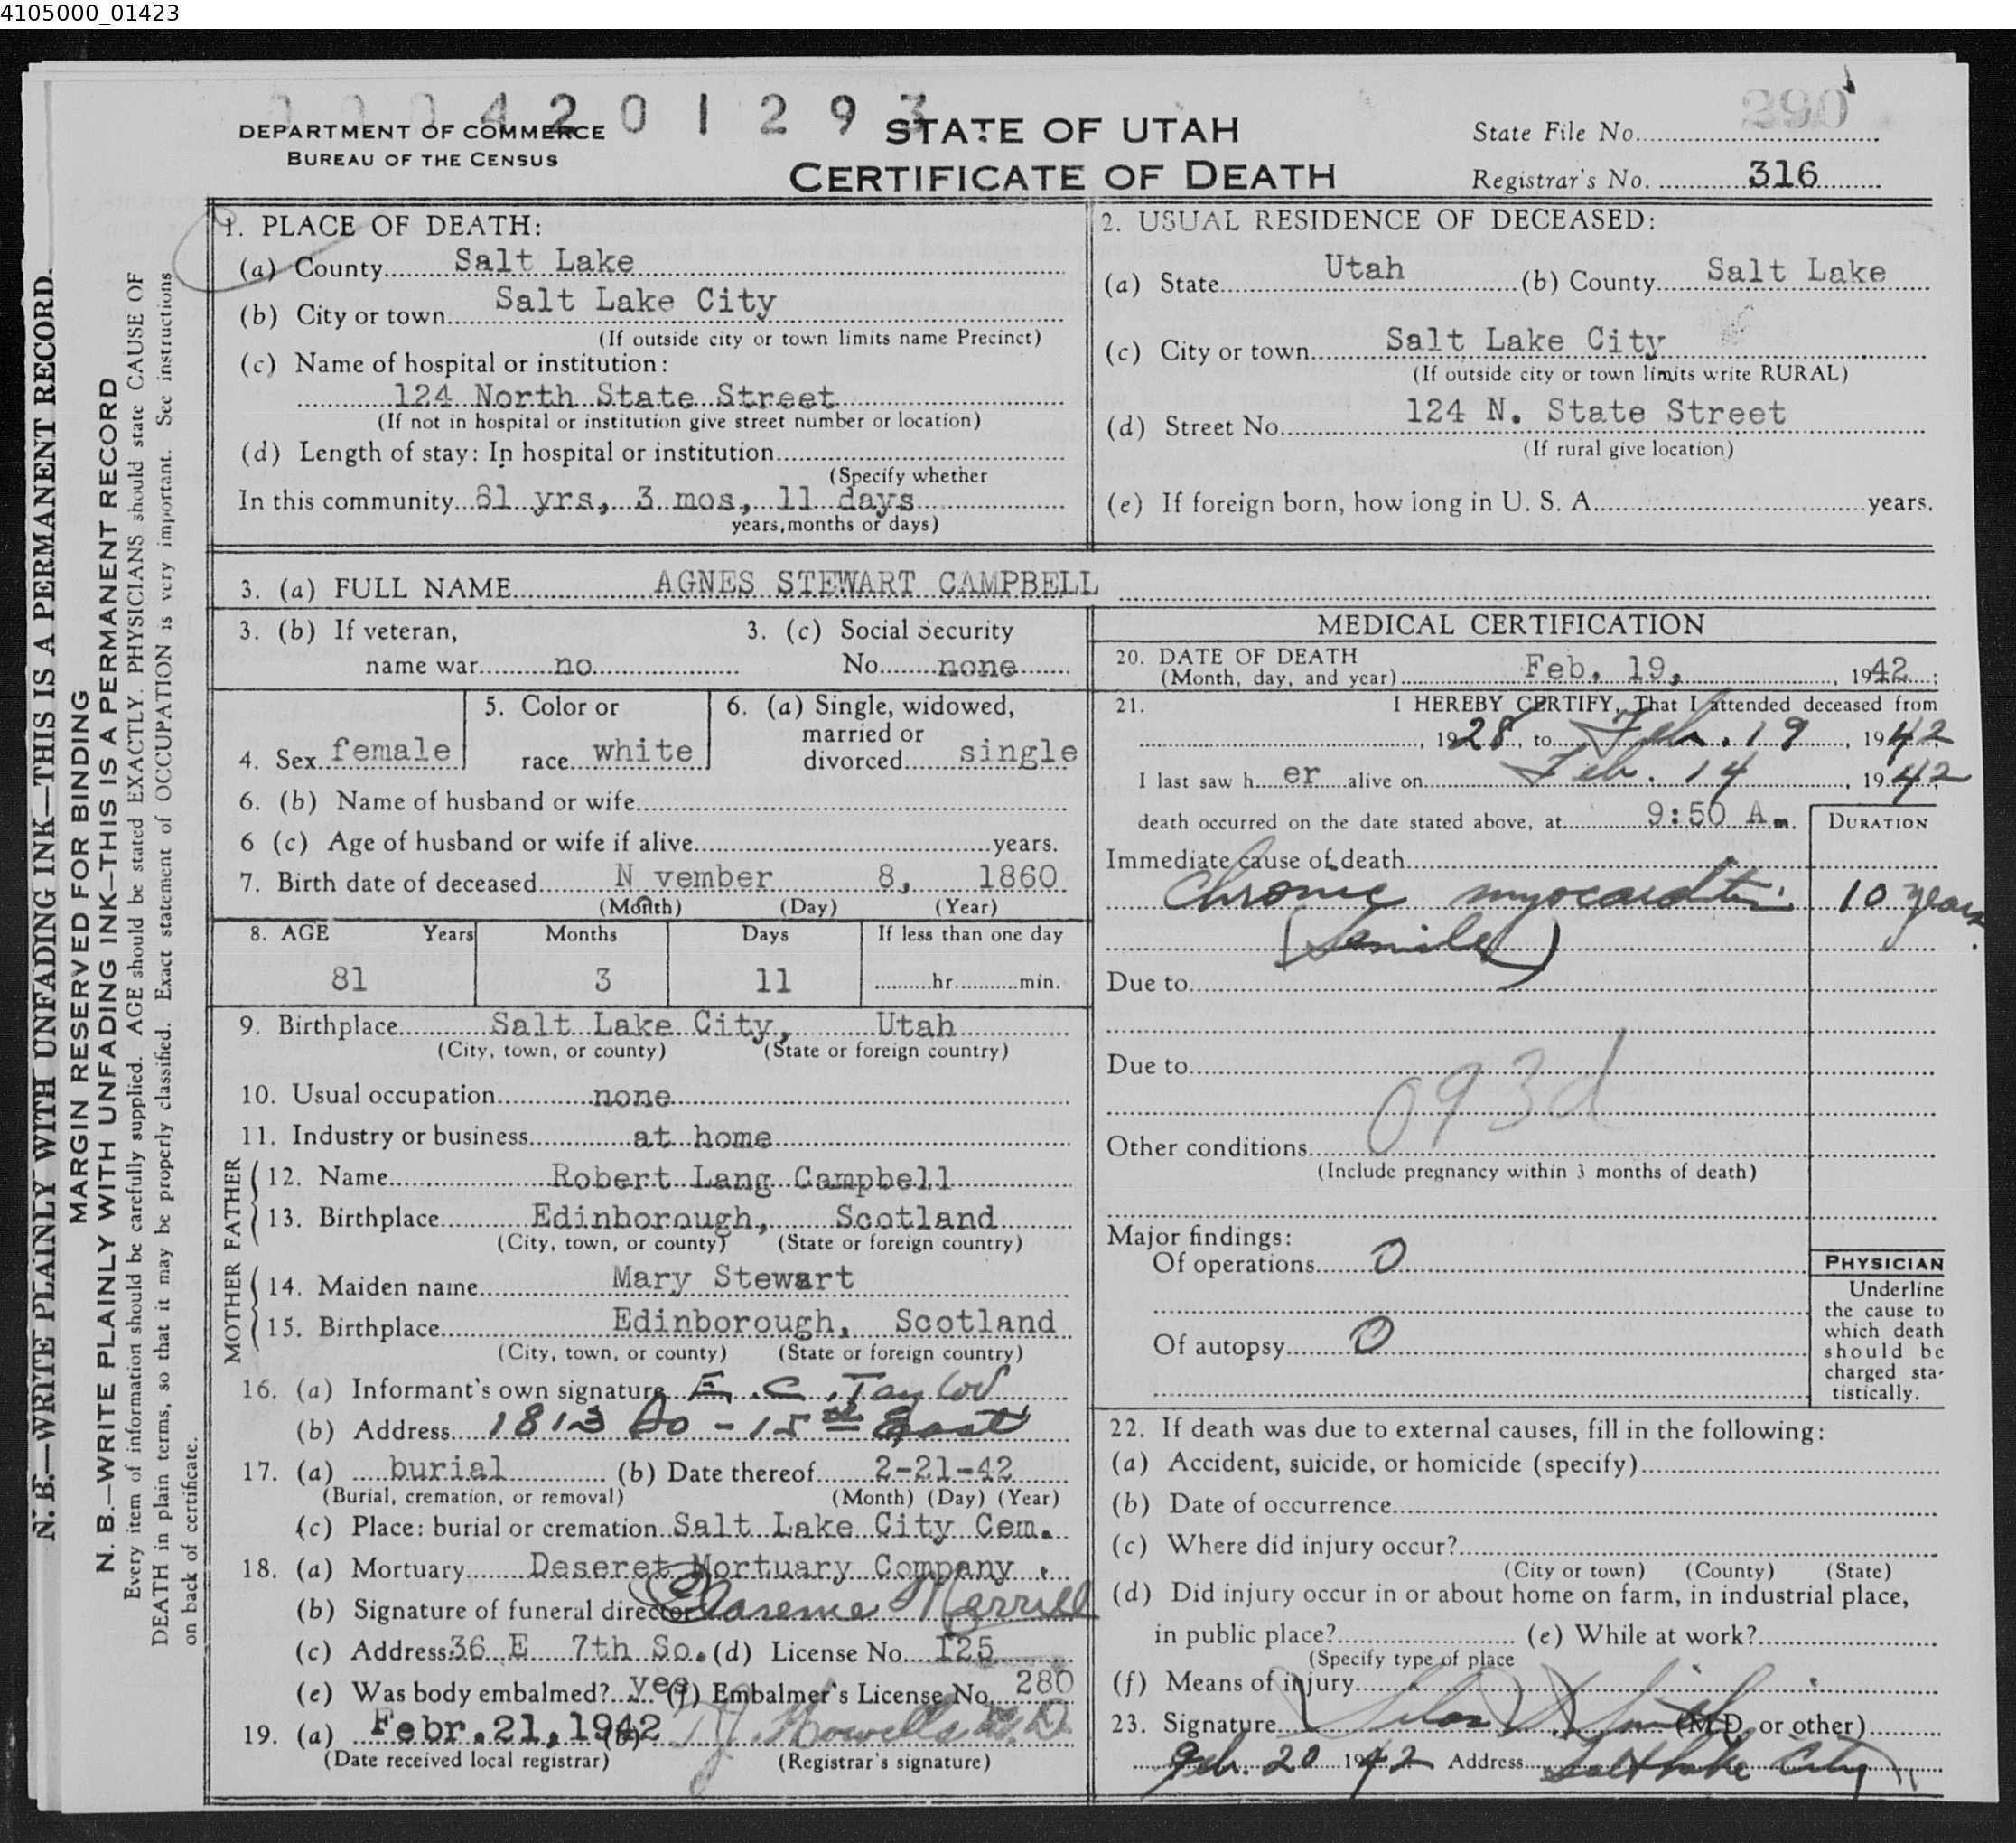 4105000_01423
0004201293
290
DEPARTMENT OF COMMERCE
BUREAU OF THE CENSUS
STATE OF UTAH
CERTIFICATE OF DEATH
State File No.
Registrar's No. 316
N. B.—WRITE PLAINLY WITH UNFADING INK—THIS IS A PERMANENT RECORD.
MARGIN RESERVED FOR BINDING
N. B.—WRITE PLAINLY WITH UNFADING INK—THIS IS A PERMANENT RECORD
Every item of information should be carefully supplied. AGE should be stated EXACTLY. PHYSICIANS should state CAUSE OF
DEATH in plain terms, so that it may be properly classified. Exact statement of OCCUPATION is very important. See instructions
on back of certificate.
1. PLACE OF DEATH:
(a) County Salt Lake
(b) City or town Salt Lake City
(If outside city or town limits name Precinct)
(c) Name of hospital or institution:
124 North State Street
(If not in hospital or institution give street number or location)
(d) Length of stay: In hospital or institution
(Specify whether
In this community 81 yrs, 3 mos, 11 days
years, months or days)
2. USUAL RESIDENCE OF DECEASED:
(a) State Utah (b) County Salt Lake
(c) City or town Salt Lake City
(If outside city or town limits write RURAL)
(d) Street No. 124 N. State Street
(If rural give location)
(e) If foreign born, how long in U. S. A. years.
3. (a) FULL NAME AGNES STEWART CAMPBELL
3. (b) If veteran,
name war no
3. (c) Social Security
No. none
4. Sex female
5. Color or
race white
6. (a) Single, widowed,
married or
divorced single
6. (b) Name of husband or wife
6 (c) Age of husband or wife if alive years.
7. Birth date of deceased N vember 8, 1860
(Month) (Day) (Year)
8. AGE Years Months Days If less than one day
81 3 11 hr. min.
9. Birthplace Salt Lake City, Utah
(City, town, or county) (State or foreign country)
10. Usual occupation none
11. Industry or business at home
FATHER
12. Name Robert Lang Campbell
13. Birthplace Edinborough, Scotland
(City, town, or county) (State or foreign country)
MOTHER
14. Maiden name Mary Stewart
15. Birthplace Edinborough, Scotland
(City, town, or county) (State or foreign country)
16. (a) Informant's own signature E. C. Taylor
(b) Address 1813 So - 15th East
17. (a) burial (b) Date thereof 2-21-42
(Burial, cremation, or removal) (Month) (Day) (Year)
(c) Place: burial or cremation Salt Lake City Cem.
18. (a) Mortuary Deseret Mortuary Company
(b) Signature of funeral director Clarence Merrill
(c) Address 36 E 7th So. (d) License No. 125
(e) Was body embalmed? yes (f) Embalmer's License No. 280
19. (a) Febr. 21, 1942 (b) T J Howells M.D.
(Date received local registrar) (Registrar's signature)
MEDICAL CERTIFICATION
20. DATE OF DEATH
(Month, day, and year) Feb. 19, 1942;
21. I HEREBY CERTIFY, That I attended deceased from
, 1928, to Feb. 19, 1942
I last saw her alive on Feb. 14, 1942
death occurred on the date stated above, at 9:50 A m.
DURATION
Immediate cause of death
Chronic myocarditis 10 years.
(Senile)
Due to
Due to
093d
Other conditions
(Include pregnancy within 3 months of death)
Major findings:
Of operations 0
Of autopsy 0
PHYSICIAN
Underline
the cause to
which death
should be
charged sta-
tistically.
22. If death was due to external causes, fill in the following:
(a) Accident, suicide, or homicide (specify)
(b) Date of occurrence
(c) Where did injury occur?
(City or town) (County) (State)
(d) Did injury occur in or about home on farm, in industrial place,
in public place? (e) While at work?
(Specify type of place
(f) Means of injury
23. Signature Silas S Smith (M.D. or other)
Feb. 20 1942 Address Salt Lake City